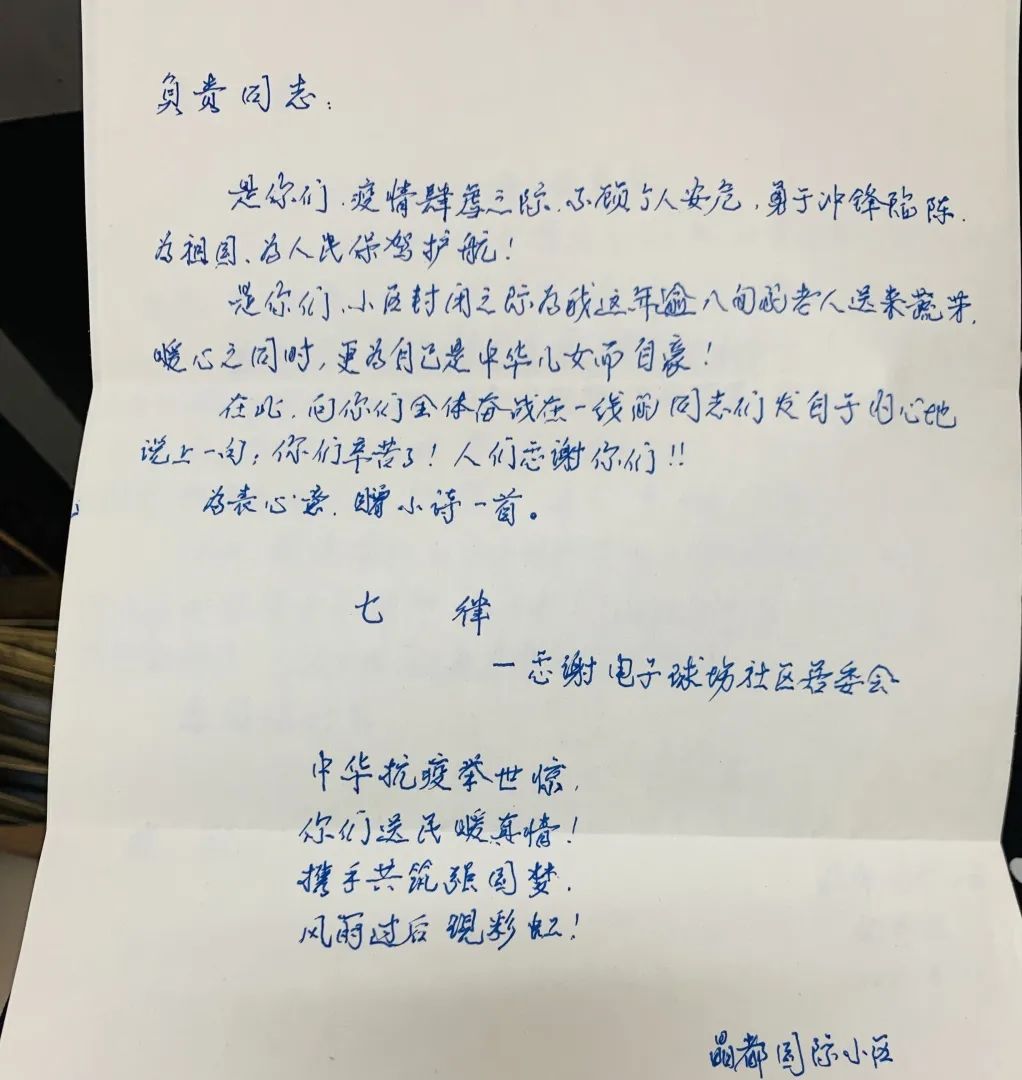 负责同志：
是你们，疫情肆虐之际，不顾个人安危，勇于冲锋陷阵，
为祖国、为人民保驾护航！
是你们，小区封闭之际为我这年逾八旬的老人送来蔬芽，
暖心之同时，更为自己是中华儿女而自豪！
在此，向你们全体奋战在一线的同志们发自于内心地
说上一句：你们辛苦了！人们感谢你们！！
为表心意，赠小诗一首。
七 律
一感谢电子球场社区居委会
中华抗疫举世惊，
你们送民暖真情！
携手共筑强国梦，
风雨过后现彩虹！
晶都国际小区